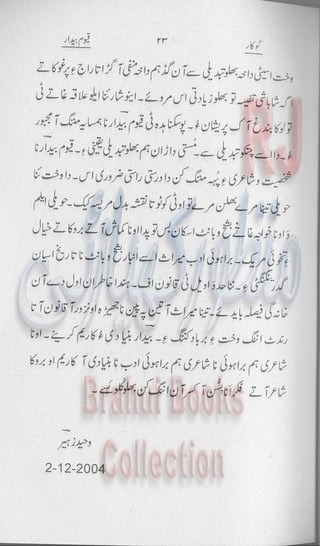 لوکار ۲۳ قیوم بیدار
وخت اسیٹی داخہ بھلو تبدیلی سے آن گڈ ہم داخہ منفی آ گڑا تا راج ءِ پرغوکاتے
اگہ شاباشی تفیسہ تو بھلو زیادتی اس مروئے۔ اینو شارئنا ایلو علاقہ غاتے ٹی
تو لوکا بندغ آک پریشان ءُ۔ پوسکنا بدہ ٹی قیوم بیدار نا ہمسایہ مننگ آ مجبور
ءُ۔ دا اسے چنکو تبدیلی سے۔ مُستی داڑان ہم بھلو تبدیلی یقینی ءِ۔ قیوم بیدار نا
شخصیت و شاعری ءِ پُہہ مننگ کن دا ورستی راستی ضروری اس۔ داوخت ننا
حویلی تینا مرے پھلن مرے تو او ٹی کوٹو تا نقشہ بدل مریسہ کیک۔ حویلی ایلم
و اونا خواجہ غاتے بشخ و بانٹ اسکان بس تو پدا اونا کماش آتے بروکا تے خیال
تخوئی مریک۔ براہوئی ادب میراث اسے انبار بشخ و بانٹ نا تاریخ اسیان
گدرینگنگٹی ءِ۔ ننا حد و اوہل ٹی قانون اف۔ ہندا خاطران اول دے آن
خانہ گی فیصلہ بایدئے۔ تینا میراث آتیٹی پہ پین نا جھیڑہ او نزور آ قانون آتا
رندٹ اننگ وخت ءِ برباد کننگ ءِ۔ بیدار بنیادی ءُ کاریم کرینے۔ اونا
شاعری ہم براہوئی نا شاعری ہم براہوئی ادب نا بنیادی آ کاریم او بروکا
شاعر آتے فکر انا بٹن آ کسر آن اننگ کن بھلو کلوئسے۔
وحید زہیر
2-12-2004
Brahui Books
Collection